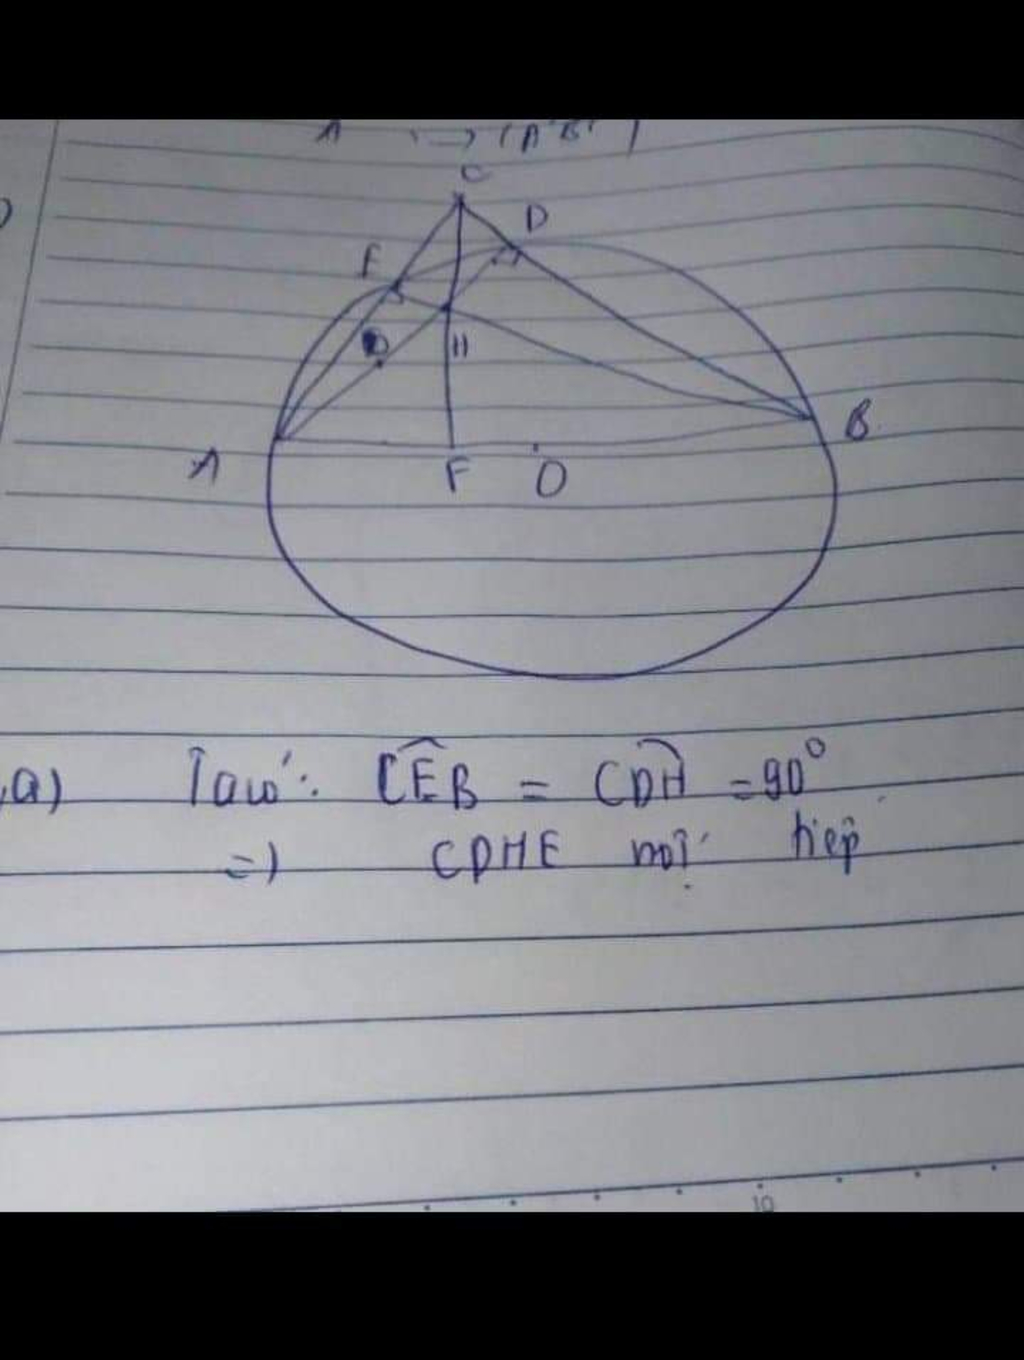 C
D
E
H
A
F
O
B
a) Ta có: CEB = CDH = 90°
=) CDHE nội tiếp
10